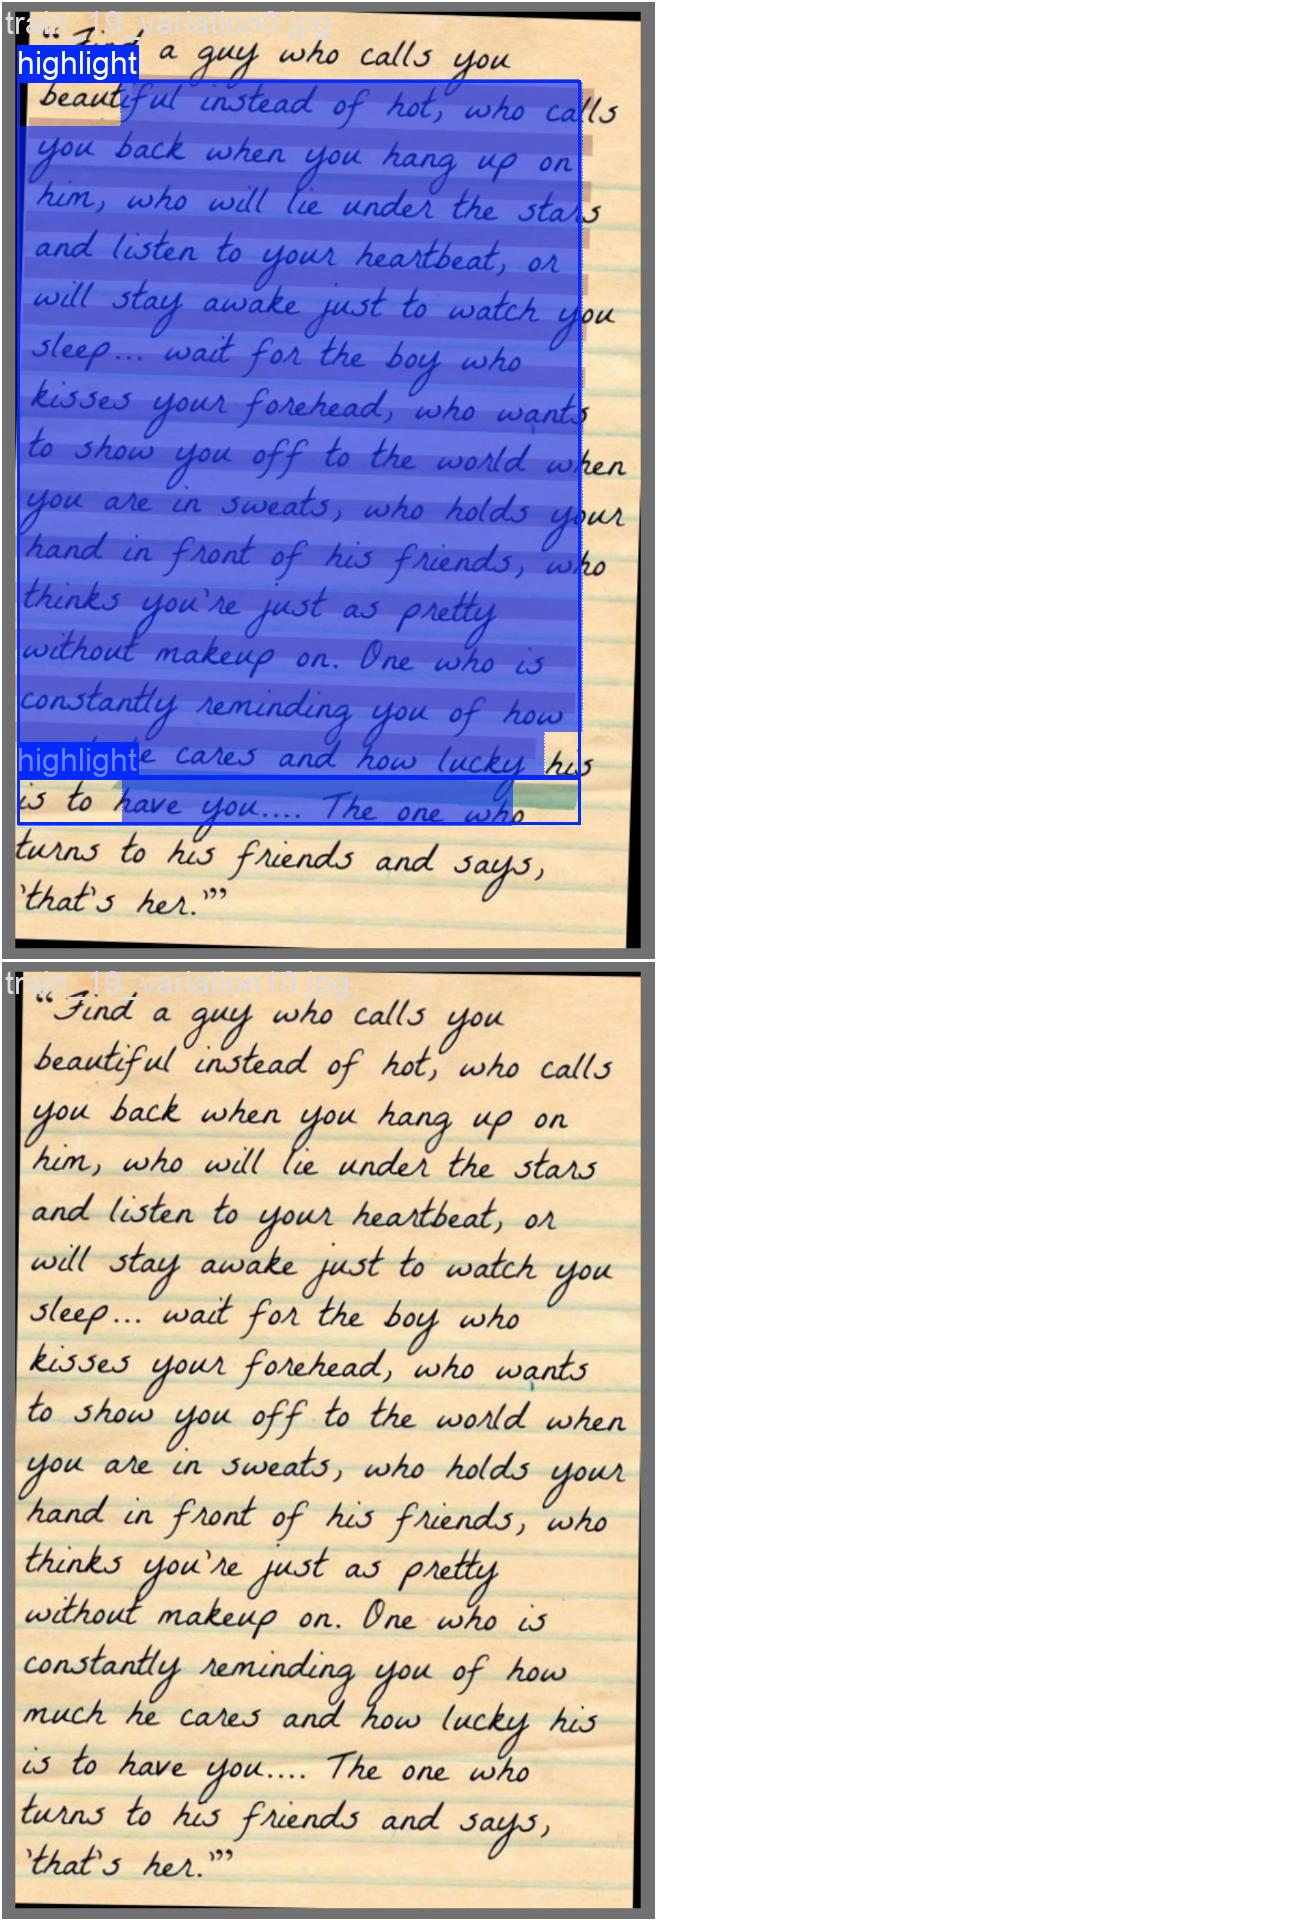 train_19_variation0.jpg
“Find a guy who calls you
highlight
beautiful instead of hot, who calls
you back when you hang up on
him, who will lie under the stars
and listen to your heartbeat, or
will stay awake just to watch you
sleep... wait for the boy who
kisses your forehead, who wants
to show you off to the world when
you are in sweats, who holds your
hand in front of his friends, who
thinks you're just as pretty
without makeup on. One who is
constantly reminding you of how
highlight cares and how lucky his
is to have you.... The one who
turns to his friends and says,
'that's her.'”
train_19_variation10.jpg
“Find a guy who calls you
beautiful instead of hot, who calls
you back when you hang up on
him, who will lie under the stars
and listen to your heartbeat, or
will stay awake just to watch you
sleep... wait for the boy who
kisses your forehead, who wants
to show you off to the world when
you are in sweats, who holds your
hand in front of his friends, who
thinks you're just as pretty
without makeup on. One who is
constantly reminding you of how
much he cares and how lucky his
is to have you.... The one who
turns to his friends and says,
'that's her.'”